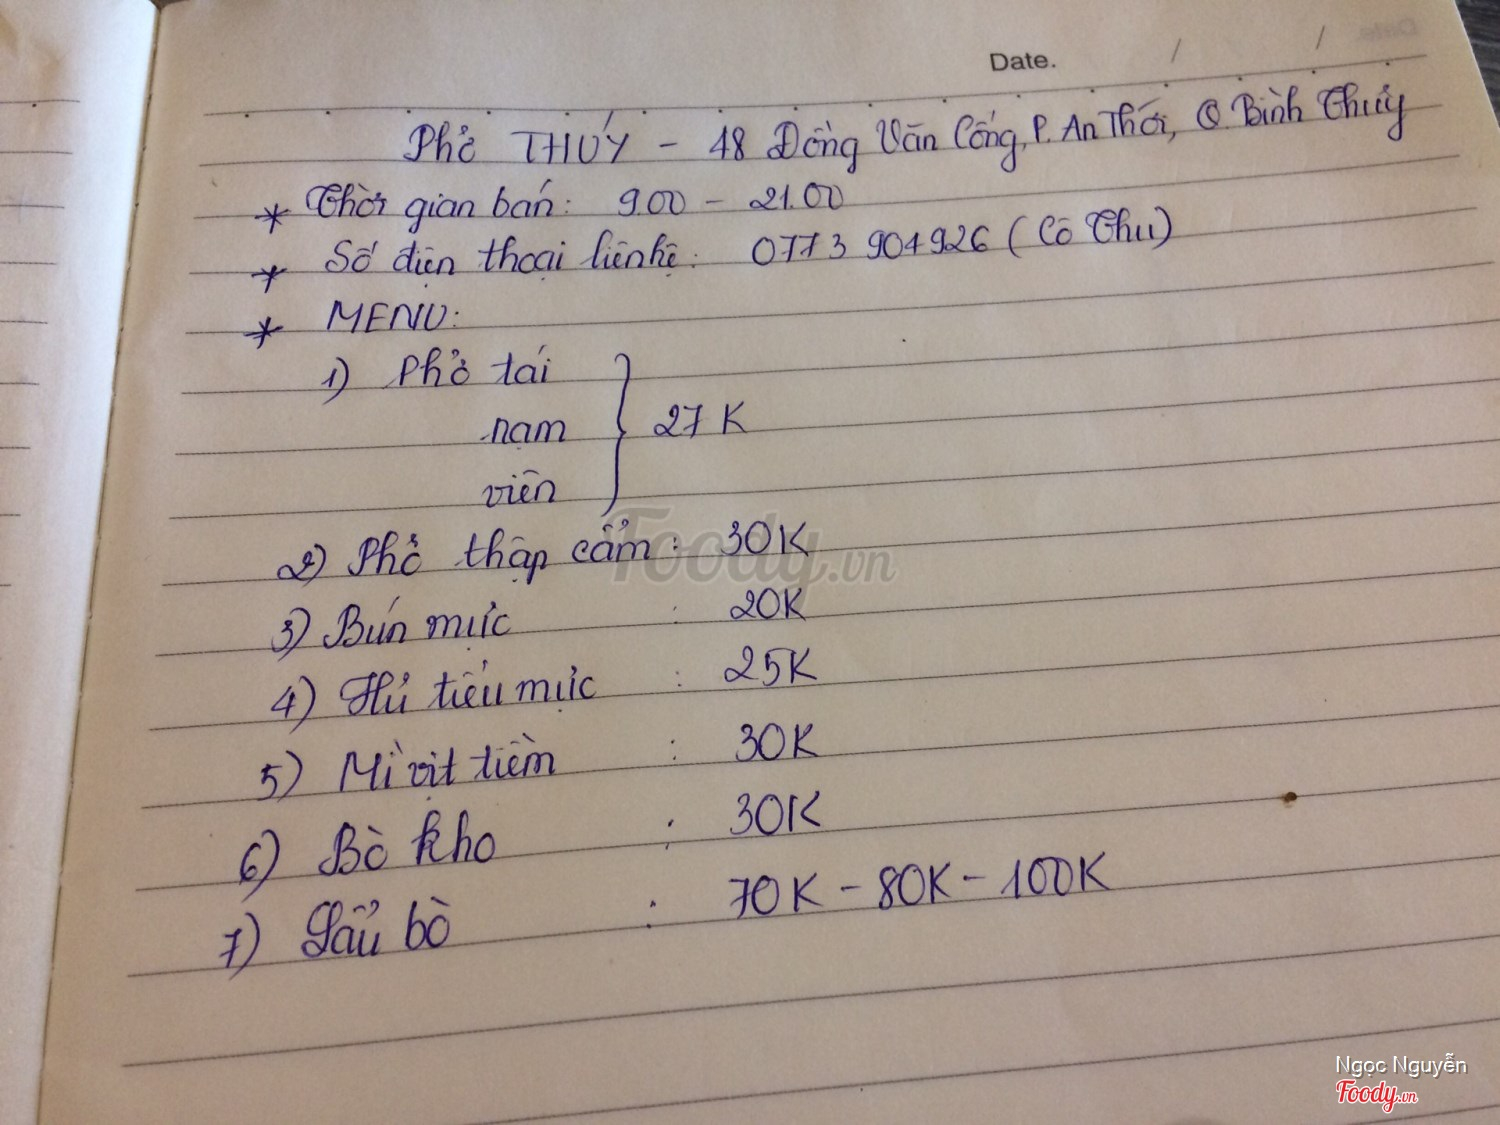 Date. / /
Phở THÚY - 48 Đồng Văn Cống, P. An Thới, Q. Bình Thủy
* Thời gian bán: 9.00 - 21.00
* Số điện thoại liên hệ: 0773 904926 (Cô Thu)
* MENU:
1) Phở tái
nạm } 27K
viên
2) Phở thập cẩm : 30K
3) Bún mực : 20K
4) Hủ tiếu mực : 25K
5) Mì vịt tiềm : 30K
6) Bò kho : 30K
7) Lẩu bò : 70K - 80K - 100K
Foody.vn
Ngọc Nguyễn
Foody.vn